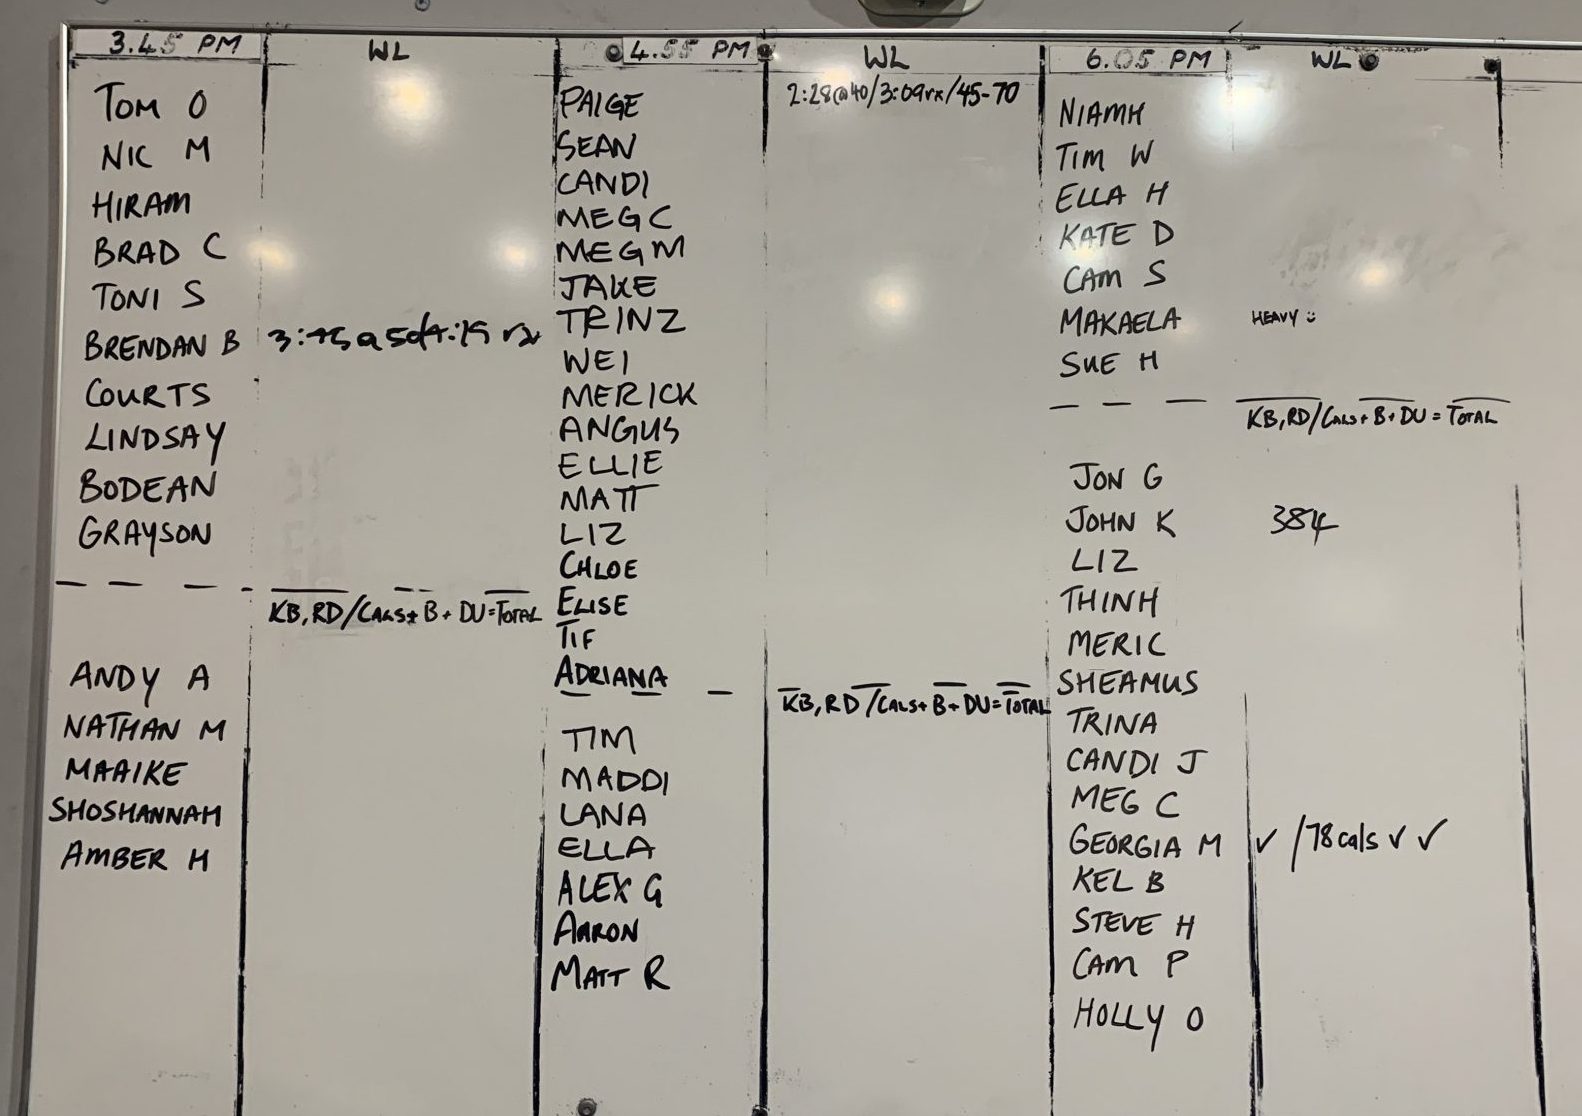 3.45 PM
WL
TOM O
NIC M
HIRAM
BRAD C
TONI S
BRENDAN B
COURTS
LINDSAY
BODEAN
GRAYSON
KB, RD/CALS+ B + DU=TOTAL
ANDY A
NATHAN M
MAAIKE
SHOSHANNAH
AMBER H
4.55 PM
WL
PAIGE 2:28@40/3:09rx/45-70
SEAN
CANDI
MEG C
MEG M
JAKE
TRINZ
WEI
MERICK
ANGUS
ELLIE
MATT
LIZ
CHLOE
ELISE
TIF
ADRIANA
KB, RD/CALS+ B+DU=TOTAL
TIM
MADDI
LANA
ELLA
ALEX G
AARON
MATT R
6.05 PM
WL
NIAMH
TIM W
ELLA H
KATE D
CAM S
MAKAELA HEAVY :)
SUE H
KB, RD/CALS+B+DU=TOTAL
JON G
JOHN K 384
LIZ
THINH
MERIC
SHEAMUS
TRINA
CANDI J
MEG C
GEORGIA M ✓ /78 cals ✓ ✓
KEL B
STEVE H
CAM P
HOLLY O